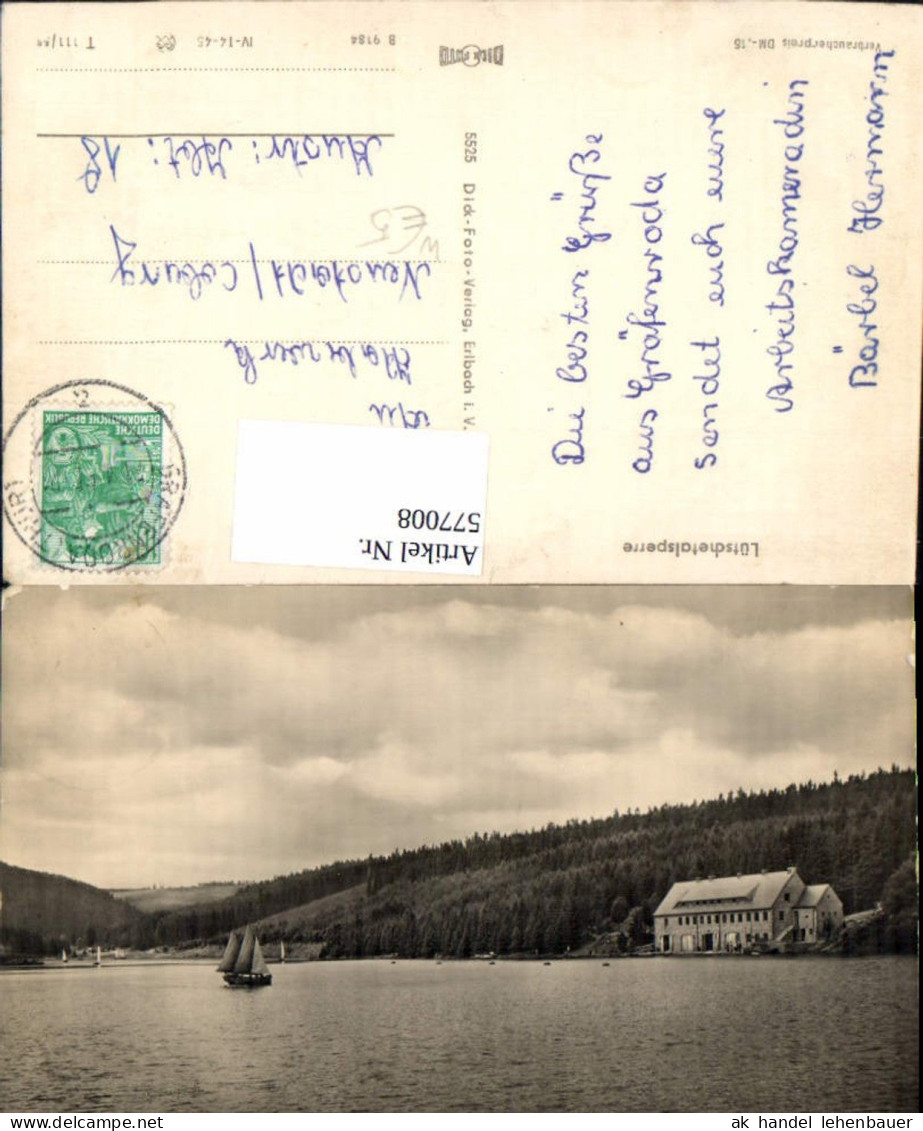 Lütschetalsperre
Die besten Grüße
aus Gräfenroda
sendet euch eure
Arbeitskameradin
Bärbel Hermann
Verbraucherpreis DM -,15
DICK FOTO
5525 Dick-Foto-Verlag, Erlbach i. V.
B 9184
IV-14-45
T 111/59
DEUTSCHE
DEMOKRATISCHE REPUBLIK
GRÄFENRODA (THÜR)
An
Neustadt / Coburg
18
Artikel Nr.
577008
ak handel lehenbauer